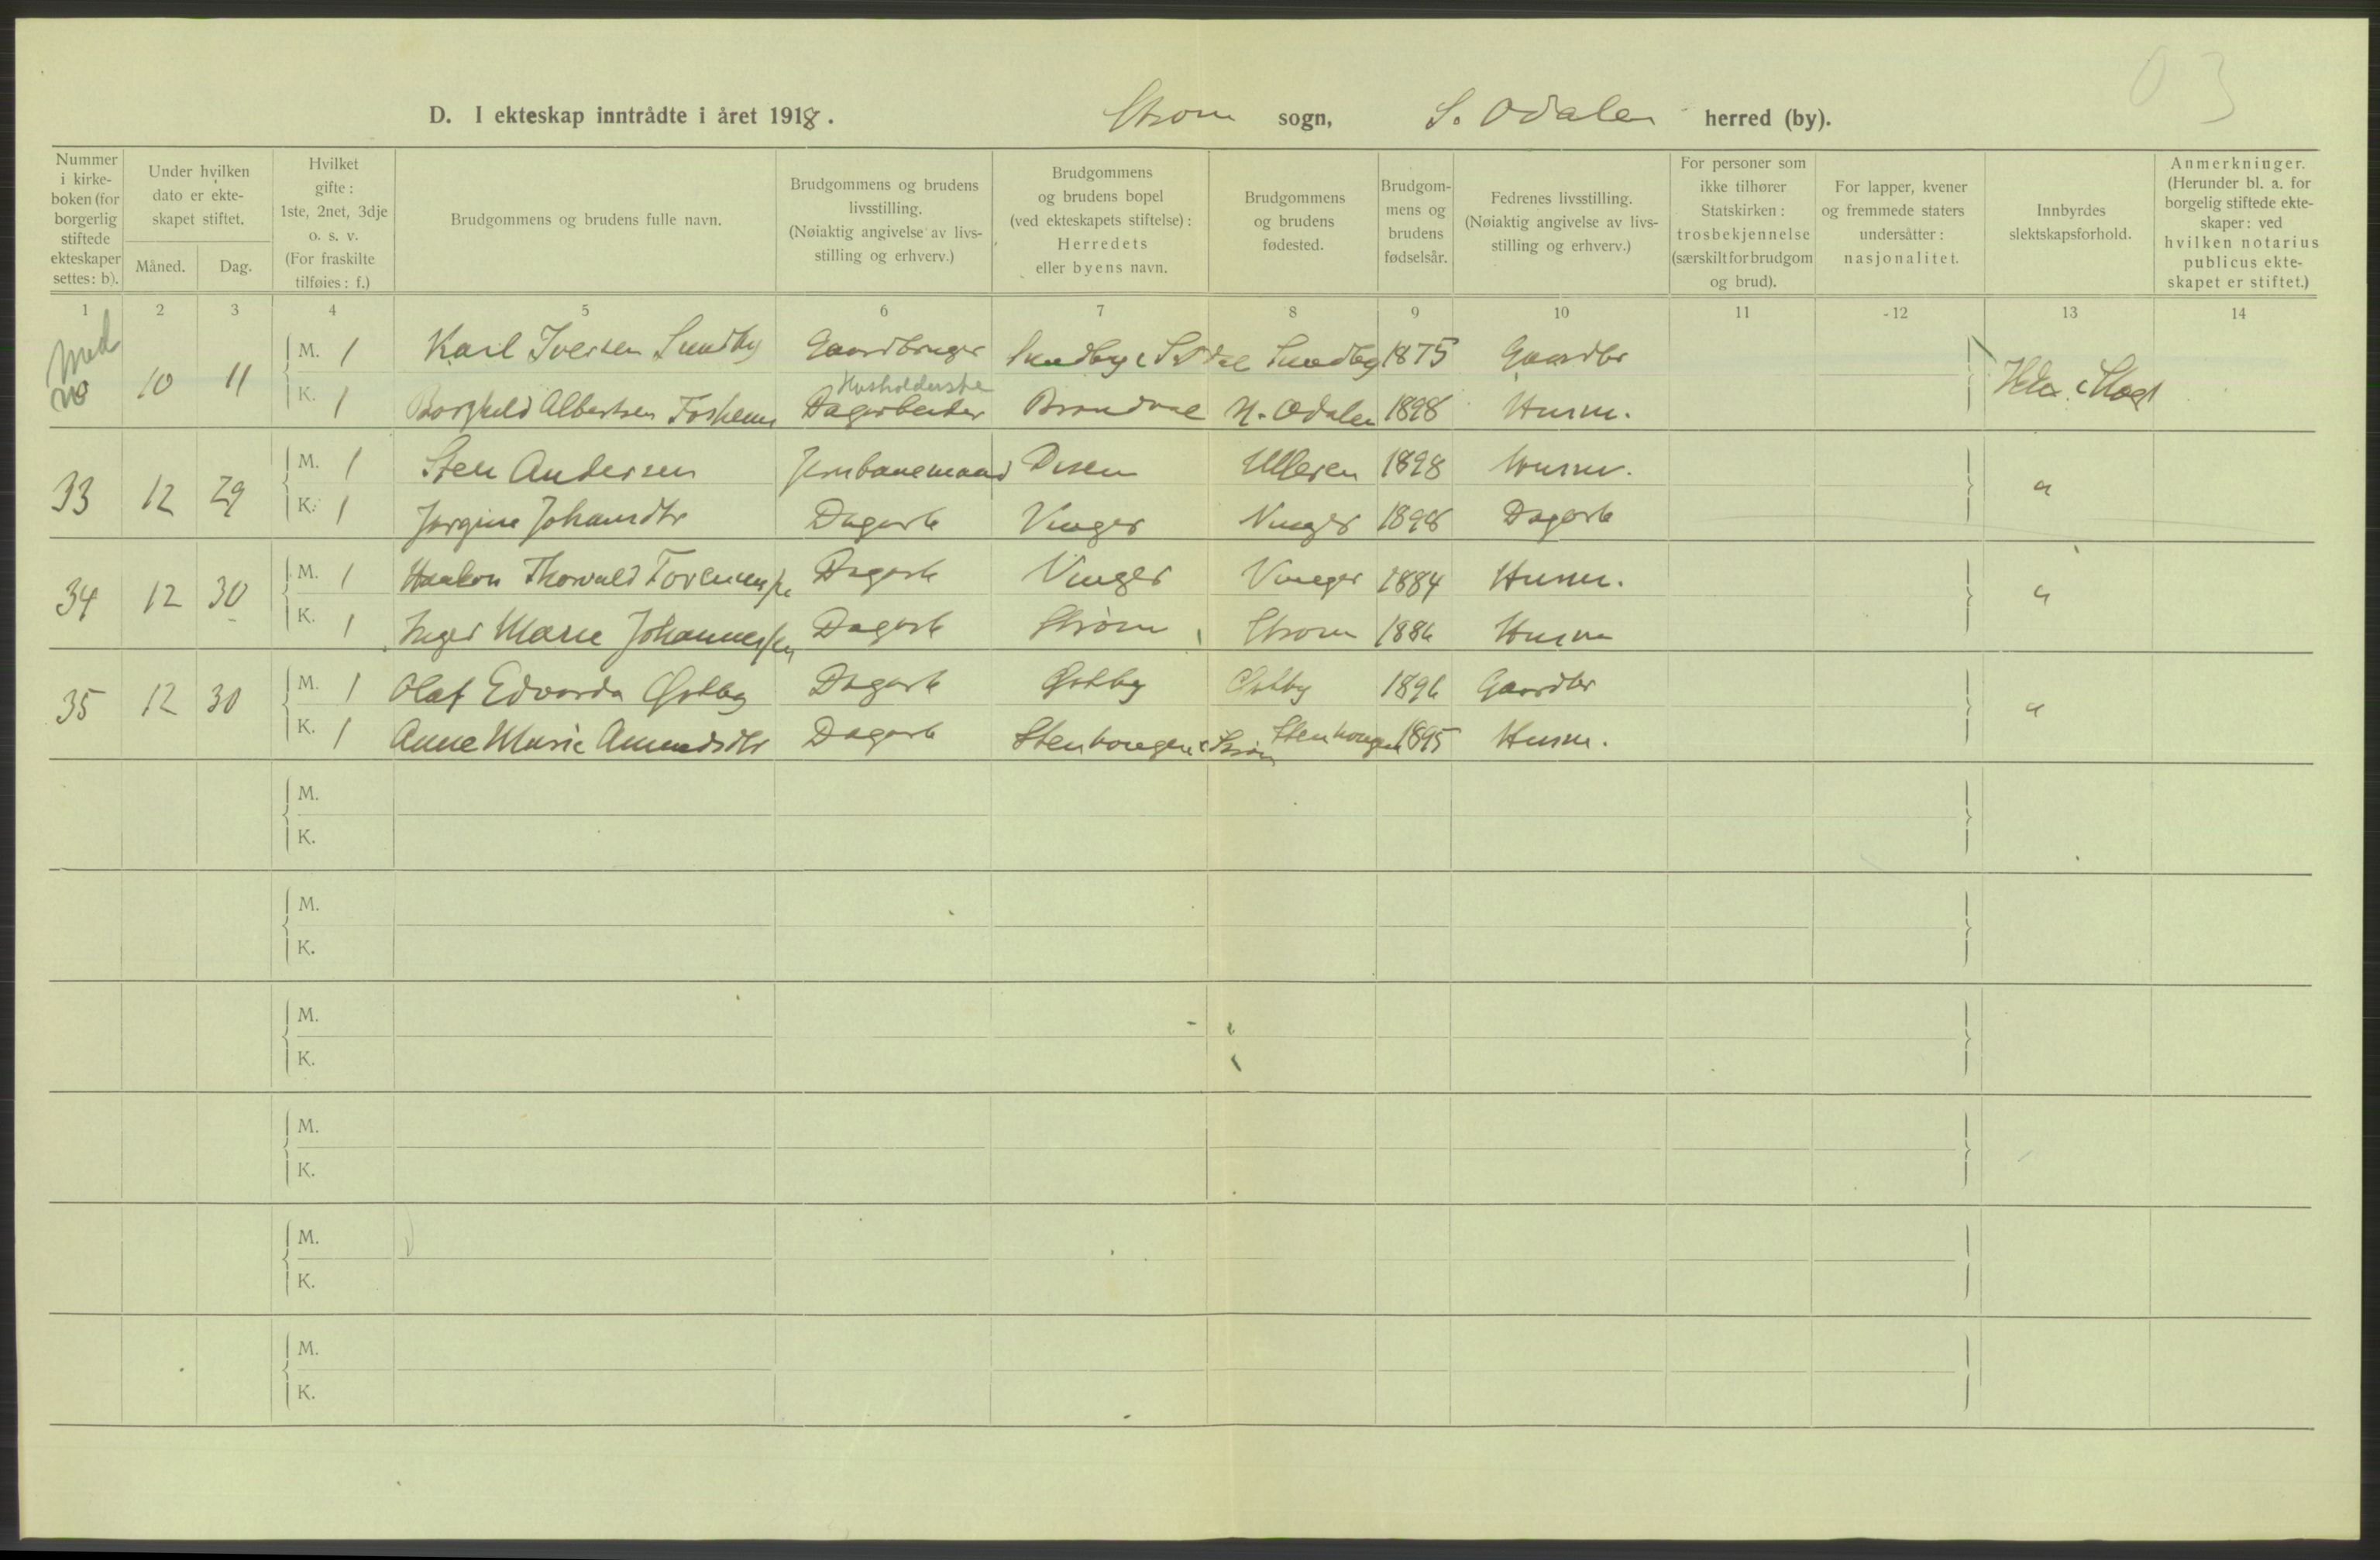 D. I ekteskap inntrådte i året 1918. Strøm sogn, S. Odalen herred (by).
Nummer i kirkeboken (for borgerlig stiftede ekteskaper settes: b).
Under hvilken dato er ekteskapet stiftet.
Måned. Dag.
Hvilket gifte: 1ste, 2net, 3dje o. s. v. (For fraskilte tilføies: f.)
Brudgommens og brudens fulle navn.
Brudgommens og brudens livsstilling. (Nøiaktig angivelse av livsstilling og erhverv.)
Brudgommens og brudens bopel (ved ekteskapets stiftelse): Herredets eller byens navn.
Brudgommens og brudens fødested.
Brudgommens og brudens fødselsår.
Fedrenes livsstilling. (Nøiaktig angivelse av livsstilling og erhverv.)
For personer som ikke tilhører Statskirken: trosbekjennelse (særskilt for brudgom og brud).
For lapper, kvener og fremmede staters undersåtter: nasjonalitet.
Innbyrdes slektskapsforhold.
Anmerkninger. (Herunder bl. a. for borgelig stiftede ekteskaper: ved hvilken notarius publicus ekteskapet er stiftet.)
1 2 3 4 5 6 7 8 9 10 11 12 13 14
10 11 M. 1 Karl Iversen Sundby Gaardbruger Sundby Sundby 1875 Gaardbr
Husholderske
K. 1 Borghild Albertsen Dagarbeider Brandval N. Odalen 1898 Husm.
33 12 29 M. 1 Sten Andersen Jernbanemand Disen Ulleren 1898 Husm. "
K. 1 Jørgine Johansdtr Dagarb Vinger Vinger 1898 Dagarb
34 12 30 M. 1 Haakon Thorvald Dagarb Vinger Vinger 1884 Husm. "
K. 1 Inger Marie Johannessen Dagarb Strøm Strøm 1886 Husm
35 12 30 M. 1 Olaf Edvarda Østby Dagarb Østby Østby 1896 Gaardbr "
K. 1 Anne Marie Amundsdtr Dagarb Stenhougen i Strøm Stenhougen 1895 Husm.
M.
K.
M.
K.
M.
K.
M.
K.
M.
K.
M.
K.